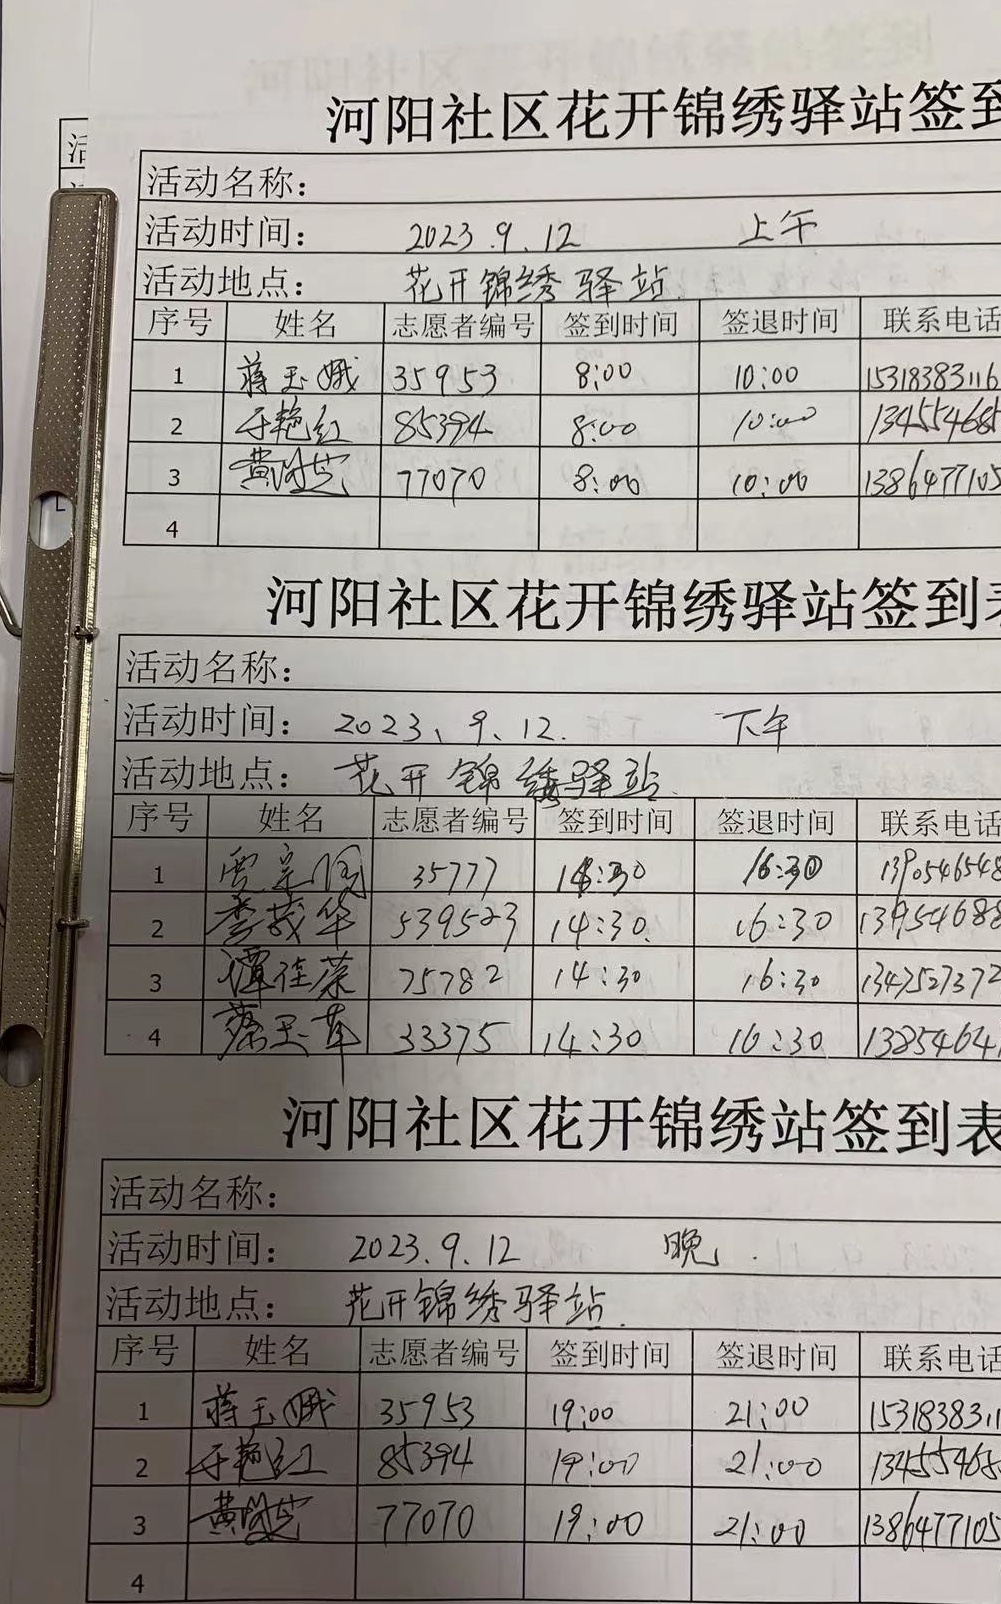 河阳社区花开锦绣驿站签到
活动名称：
活动时间： 2023.9.12 上午
活动地点： 花开锦绣驿站
序号 姓名 志愿者编号 签到时间 签退时间 联系电话
1 蒋玉娥 35953 8:00 10:00 15318383116
2 于艳红 85394 8:00 10:00 134554685
3 黄 77070 8:00 10:00 1386477105
4
河阳社区花开锦绣驿站签到表
活动名称：
活动时间： 2023、9、12. 下午
活动地点： 花开锦绣驿站.
序号 姓名 志愿者编号 签到时间 签退时间 联系电话
1 35777 14:30 16:30 1390546548
2 李莪华 539523 14:30. 16:30 1395468
3 谭佳荣 75782 14:30 16:30 1347527372
4 蔡玉苹 33375 14:30 16:30 13854641
河阳社区花开锦绣站签到表
活动名称：
活动时间： 2023.9.12 晚
活动地点： 花开锦绣驿站.
序号 姓名 志愿者编号 签到时间 签退时间 联系电话
1 蒋玉娥 35953 19:00 21:00 1531838311
2 于艳红 85394 19:00 21:00 13455468
3 黄 77070 19:00 21:00 1386477105
4